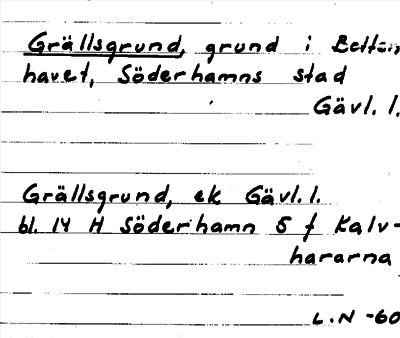 Grällsgrund, grund i Botten
havet, Söderhamns stad
Gävl. l.
Grällsgrund, ek Gävl. l.
bl. 14 H Söderhamn 5 f Kalv-
hararna
L.N -60